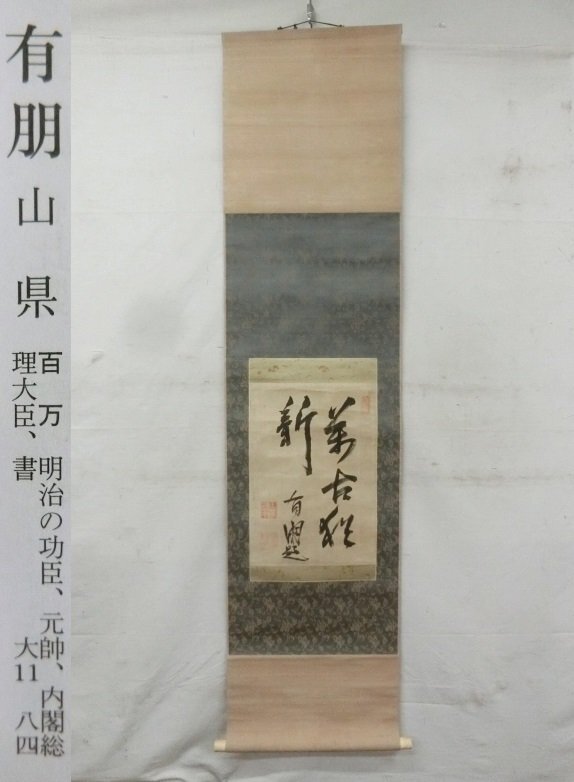 有朋 山県 百万 明治の功臣、元帥、内閣総
理大臣、書 大11 八四
萬古猶
新
有朋題